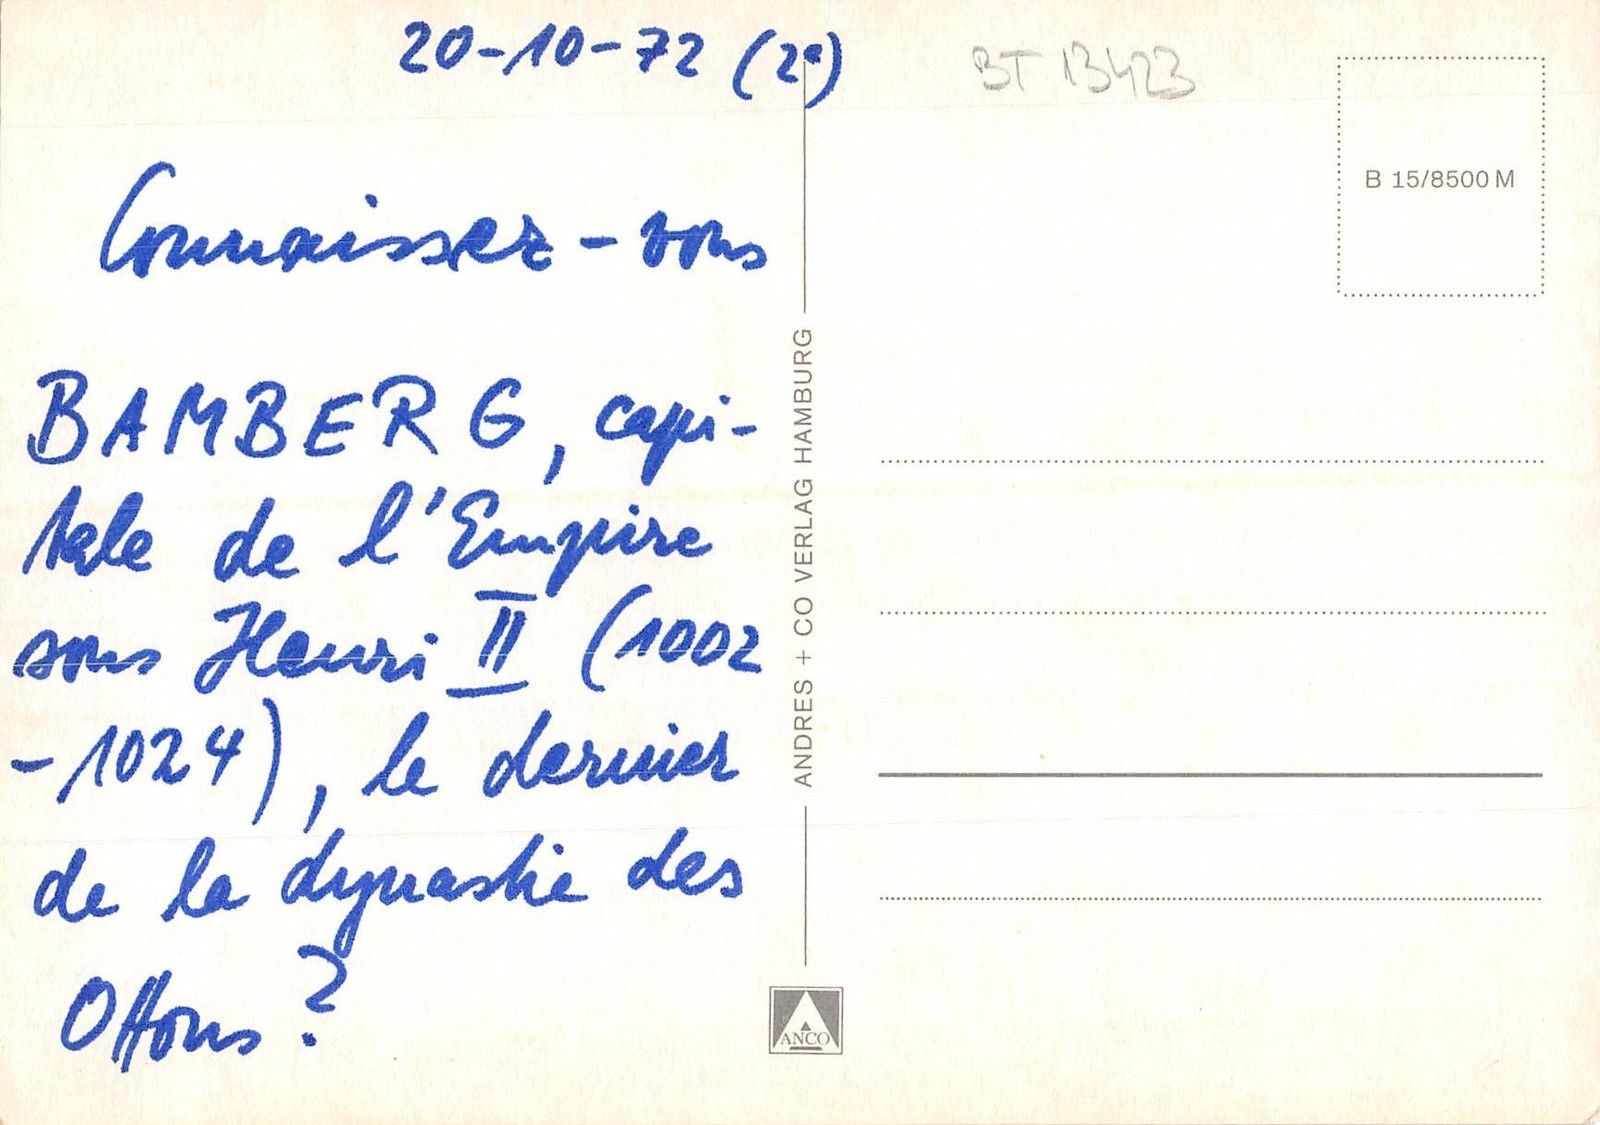 20-10-72 (2e)
Connaissez-vous
BAMBERG, capi-
tale de l'Empire
sous Henri II (1002
-1024), le dernier
de la dynastie des
Ottons ?
ANDRES + CO VERLAG HAMBURG
ANCO
BT 13423
B 15/8500 M